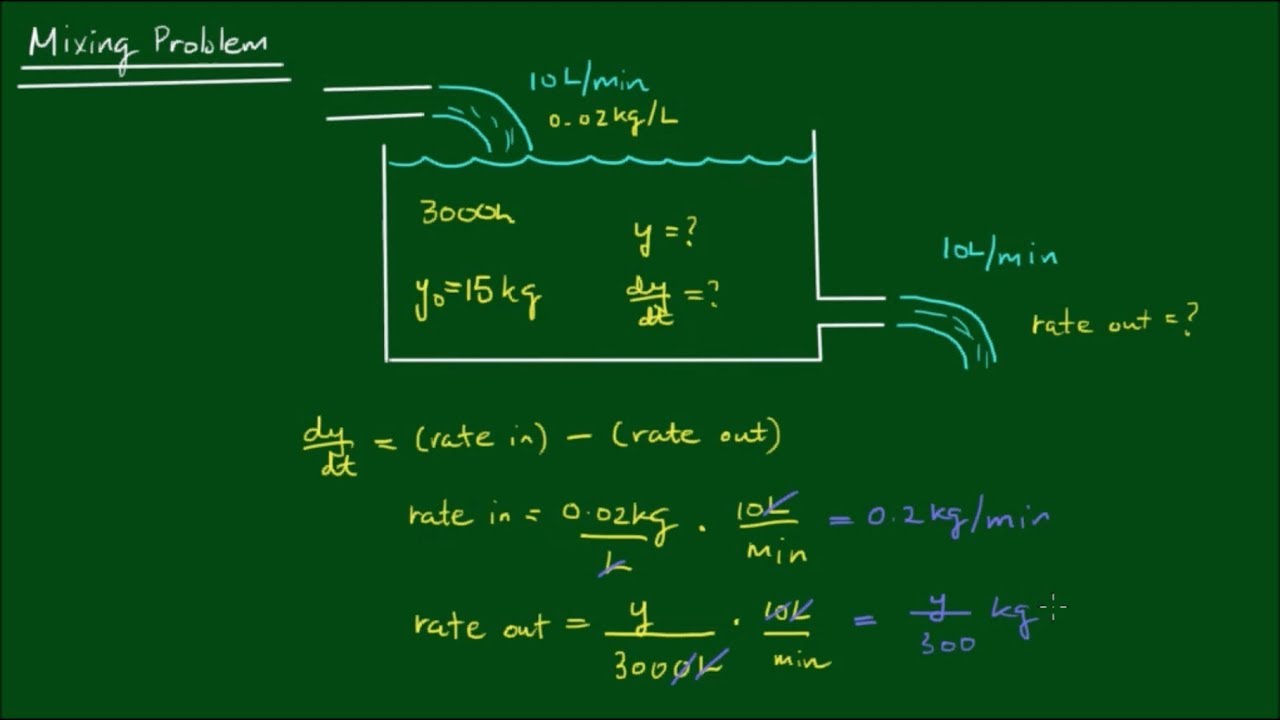 Mixing Problem
10L/min
0.02kg/L
3000L
y = ?
10L/min
y₀=15kg
dy/dt = ?
rate out = ?
dy/dt = (rate in) − (rate out)
rate in = 0.02kg/L · 10L/min = 0.2kg/min
rate out = y/3000L · 10L/min = y/300 kg